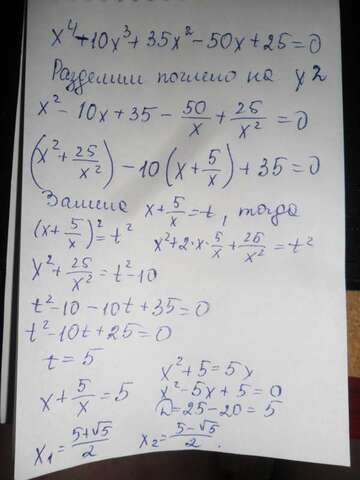 x⁴-10x³+35x²-50x+25=0
Разделим почлено на x2
x²-10x+35-50/x+25/x²=0
(x²+25/x²)-10(x+5/x)+35=0
Замена x+5/x=t, тогда
(x+5/x)²=t² x²+2·x·5/x+25/x²=t²
x²+25/x²=t²-10
t²-10-10t+35=0
t²-10t+25=0
t=5 x²+5=5x
x+5/x=5 x²-5x+5=0
D=25-20=5
x₁=(5+√5)/2 x₂=(5-√5)/2.